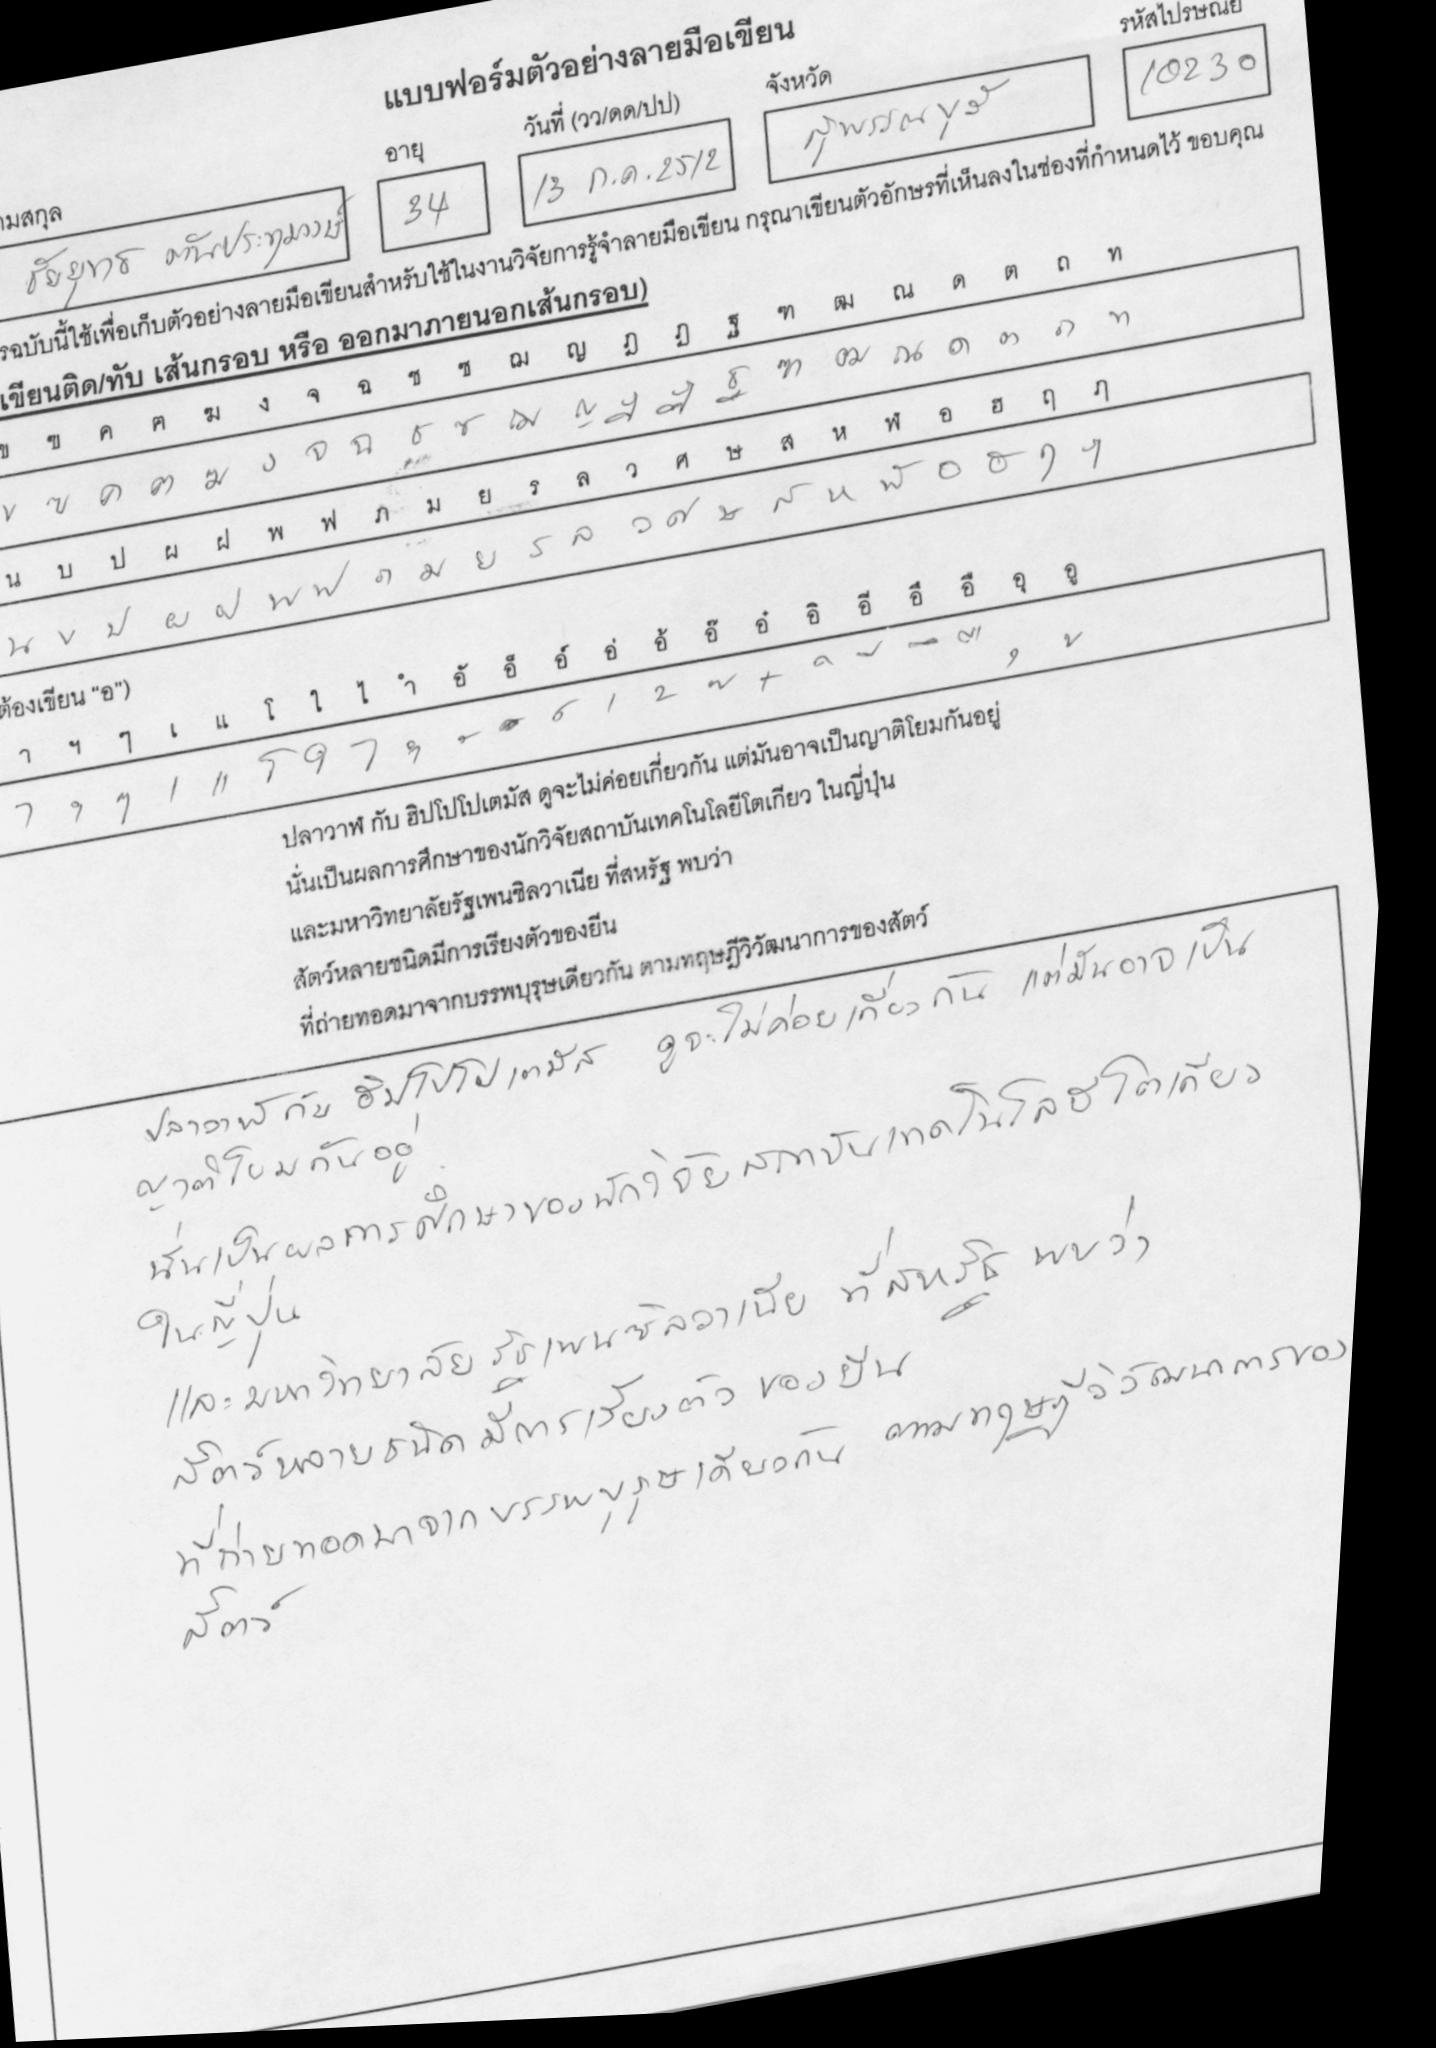 แบบฟอร์มตัวอย่างลายมือเขียน
ามสกุล อายุ วันที่ (วว/ดด/ปป) จังหวัด รหัสไปรษณีย์
ชัยยุทธ 34 13 ก.ค. 2512 สุพรรณบุรี 10230
รฉบับนี้ใช้เพื่อเก็บตัวอย่างลายมือเขียนสำหรับใช้ในงานวิจัยการรู้จำลายมือเขียน กรุณาเขียนตัวอักษรที่เห็นลงในช่องที่กำหนดไว้ ขอบคุณ
เขียนติด/ทับ เส้นกรอบ หรือ ออกมาภายนอกเส้นกรอบ)
ข ฃ ค ฅ ฆ ง จ ฉ ช ซ ฌ ญ ฎ ฏ ฐ ฑ ฒ ณ ด ต ถ ท
ข ฃ ค ฅ ฆ ง จ ฉ ช ซ ฌ ญ ฎ ฏ ฐ ฑ ฒ ณ ด ต ถ ท
น บ ป ผ ฝ พ ฟ ภ ม ย ร ล ว ศ ษ ส ห ฬ อ ฮ ฤ ฦ
น บ ป ผ ฝ พ ฟ ภ ม ย ร ล ว ศ ษ ส ห ฬ อ ฮ ฤ ฦ
ต้องเขียน "อ")
า ฯ ๆ เ แ โ ใ ไ ำ อั อ็ อ์ อ่ อ้ อ๊ อ๋ อิ อี อึ อื อุ อู
า ฯ ๆ เ แ โ ใ ไ ำ ั ็ ์ ่ ้ ๊ ๋ ิ ี ึ ื ุ ู
ปลาวาฬ กับ ฮิปโปโปเตมัส ดูจะไม่ค่อยเกี่ยวกัน แต่มันอาจเป็นญาติโยมกันอยู่
นั่นเป็นผลการศึกษาของนักวิจัยสถาบันเทคโนโลยีโตเกียว ในญี่ปุ่น
และมหาวิทยาลัยรัฐเพนซิลวาเนีย ที่สหรัฐ พบว่า
สัตว์หลายชนิดมีการเรียงตัวของยีน
ที่ถ่ายทอดมาจากบรรพบุรุษเดียวกัน ตามทฤษฎีวิวัฒนาการของสัตว์
ปลาวาฬ กับ ฮิปโปโปเตมัส ดูจะไม่ค่อยเกี่ยวกัน แต่มันอาจเป็น
ญาติโยมกันอยู่
นั่นเป็นผลการศึกษาของนักวิจัยสถาบันเทคโนโลยีโตเกียว
ในญี่ปุ่น
และมหาวิทยาลัยรัฐเพนซิลวาเนีย ที่สหรัฐ พบว่า
สัตว์หลายชนิดมีการเรียงตัวของยีน
ที่ถ่ายทอดมาจากบรรพบุรุษเดียวกัน ตามทฤษฎีวิวัฒนาการของ
สัตว์